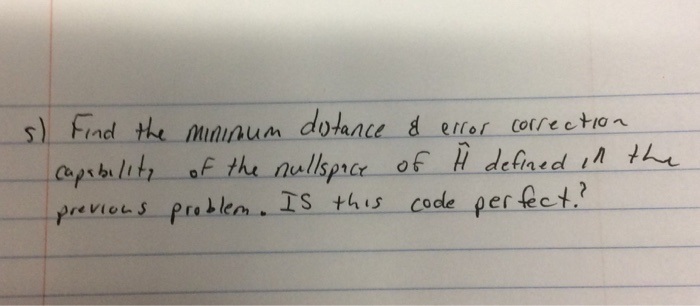 5) Find the mininum distance & error correction
capability of the nullspace of H̃ defined in the
previous problem. IS this code perfect?